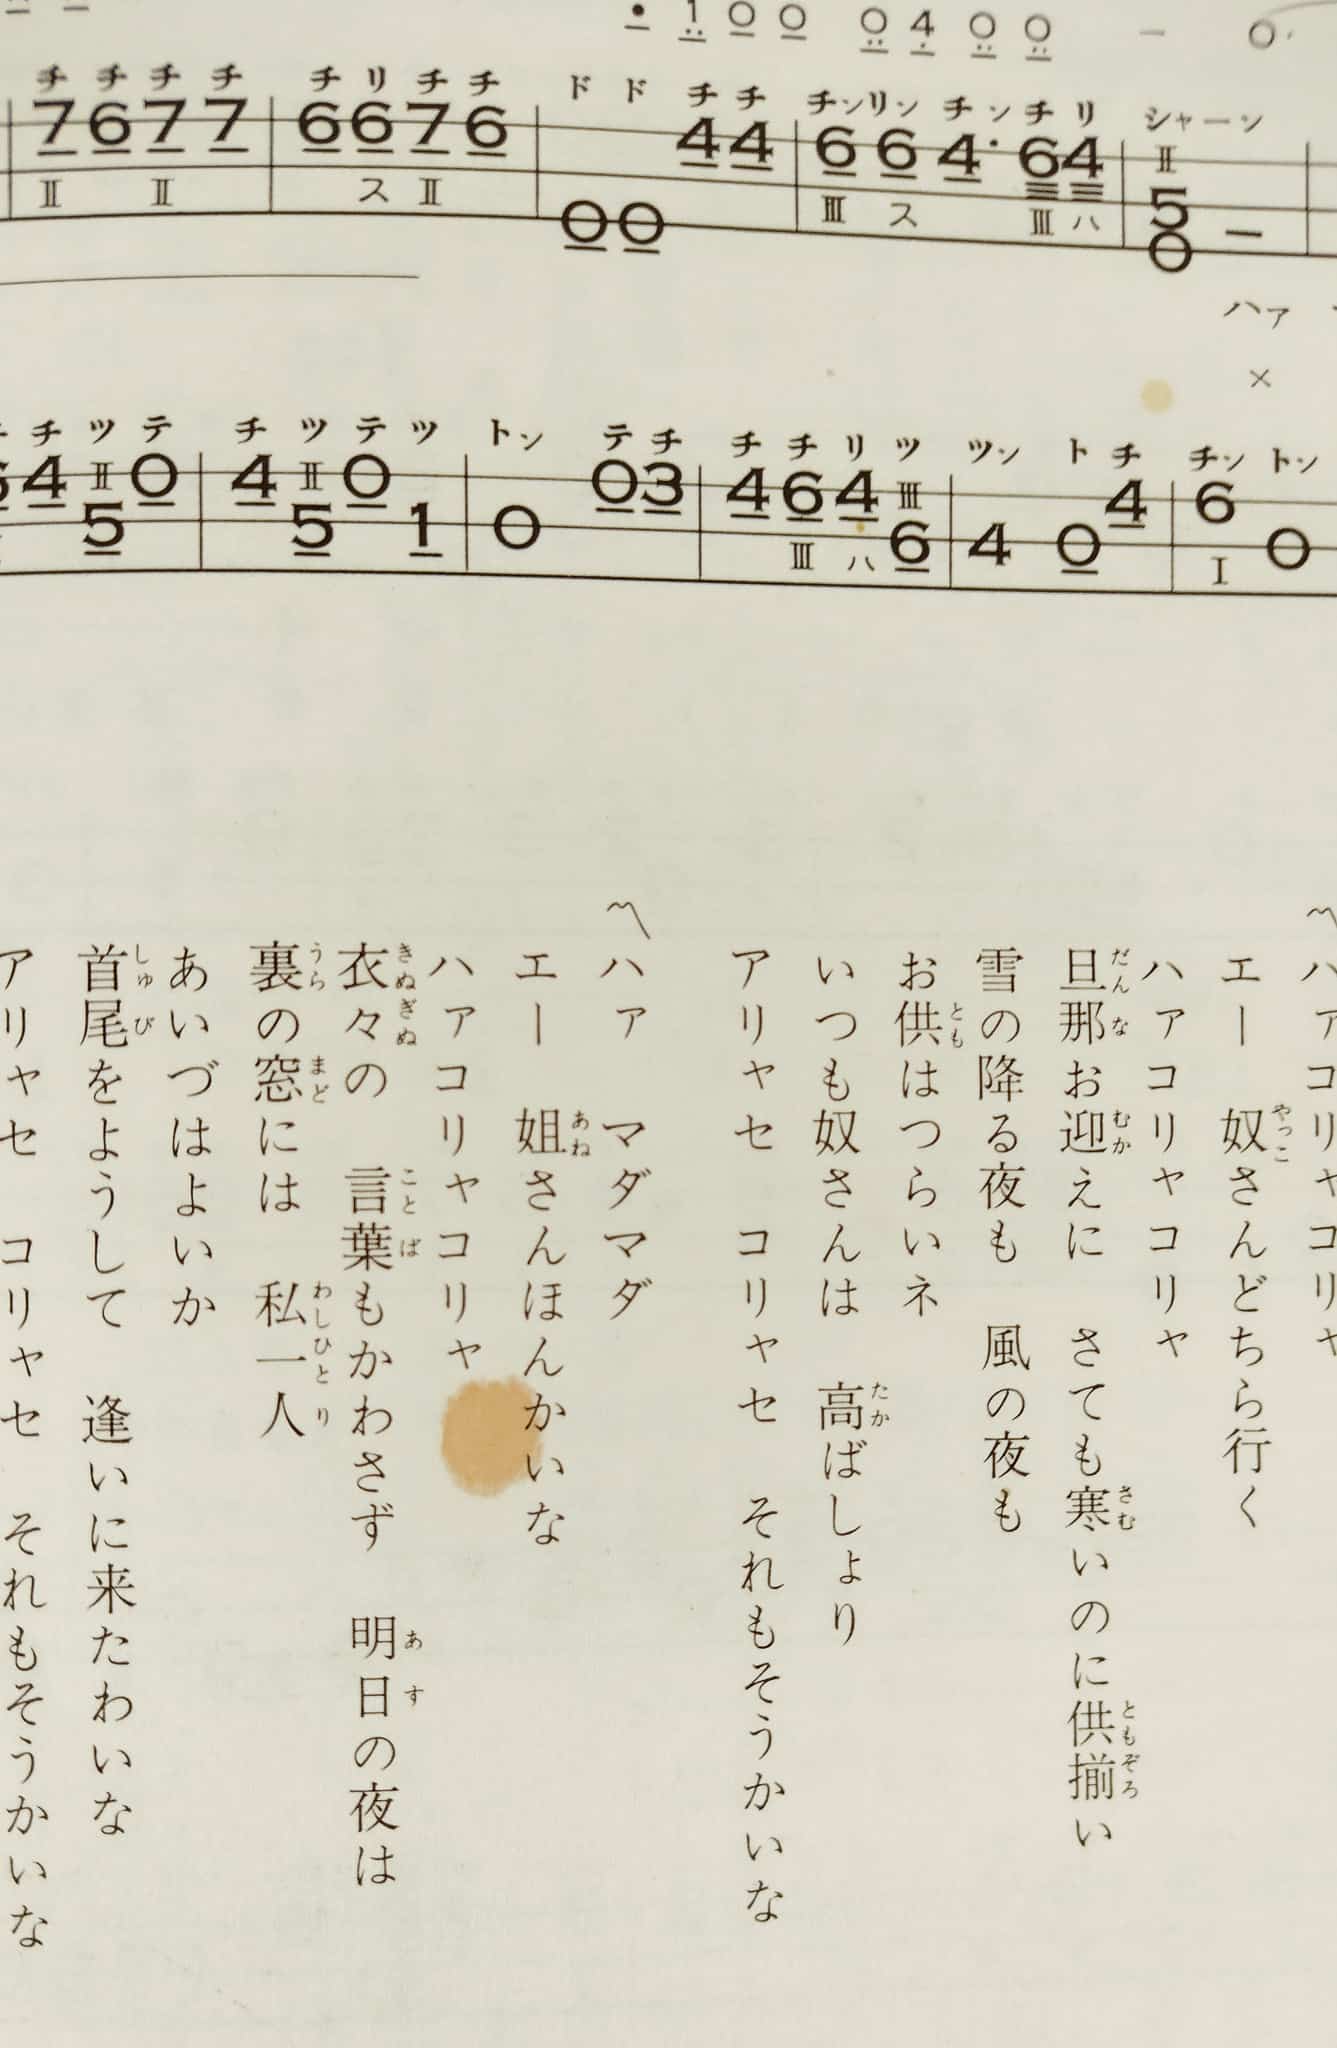 チ チ チ チ チ リ チ チ ド ド チ チ チン リン チン チ リ シャーン
7 6 7 7 6 6 7 6 0 0 4 4 6 6 4・ 6 4 5 0 －
II II ス II III ス III ハ II
ハァ
×
チ ツ テ チ ツ テ ツ トン テ チ チ チ リ ツ ツン ト チ チン トン
4 5 0 4 5 0 1 0 0 3 4 6 4 6 4 0 4 6 0
II II III ハ III I
ハァコリャコリャ
エー　奴さんどちら行く
ハァコリャコリャ
旦那お迎えに　さても寒いのに供揃い
雪の降る夜も　風の夜も
お供はつらいネ
いつも奴さんは　高ばしょり
アリャセ　コリャセ　それもそうかいな
〽ハア　マダマダ
エー　姐さんほんかいな
ハァコリャコリャ
衣々の　言葉もかわさず　明日の夜は
裏の窓には　私一人
あいづはよいか
首尾をようして　逢いに来たわいな
アリャセ　コリャセ　それもそうかいな